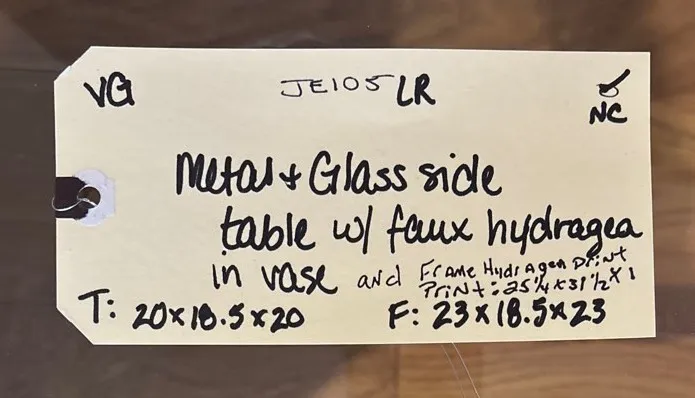 VG JE105 LR NC
Metal + Glass side
table w/ faux hydragea
in vase and Frame Hydragea print
Print: 25 1/4 x 31 1/2 x 1
T: 20x18.5x20 F: 23x18.5x23